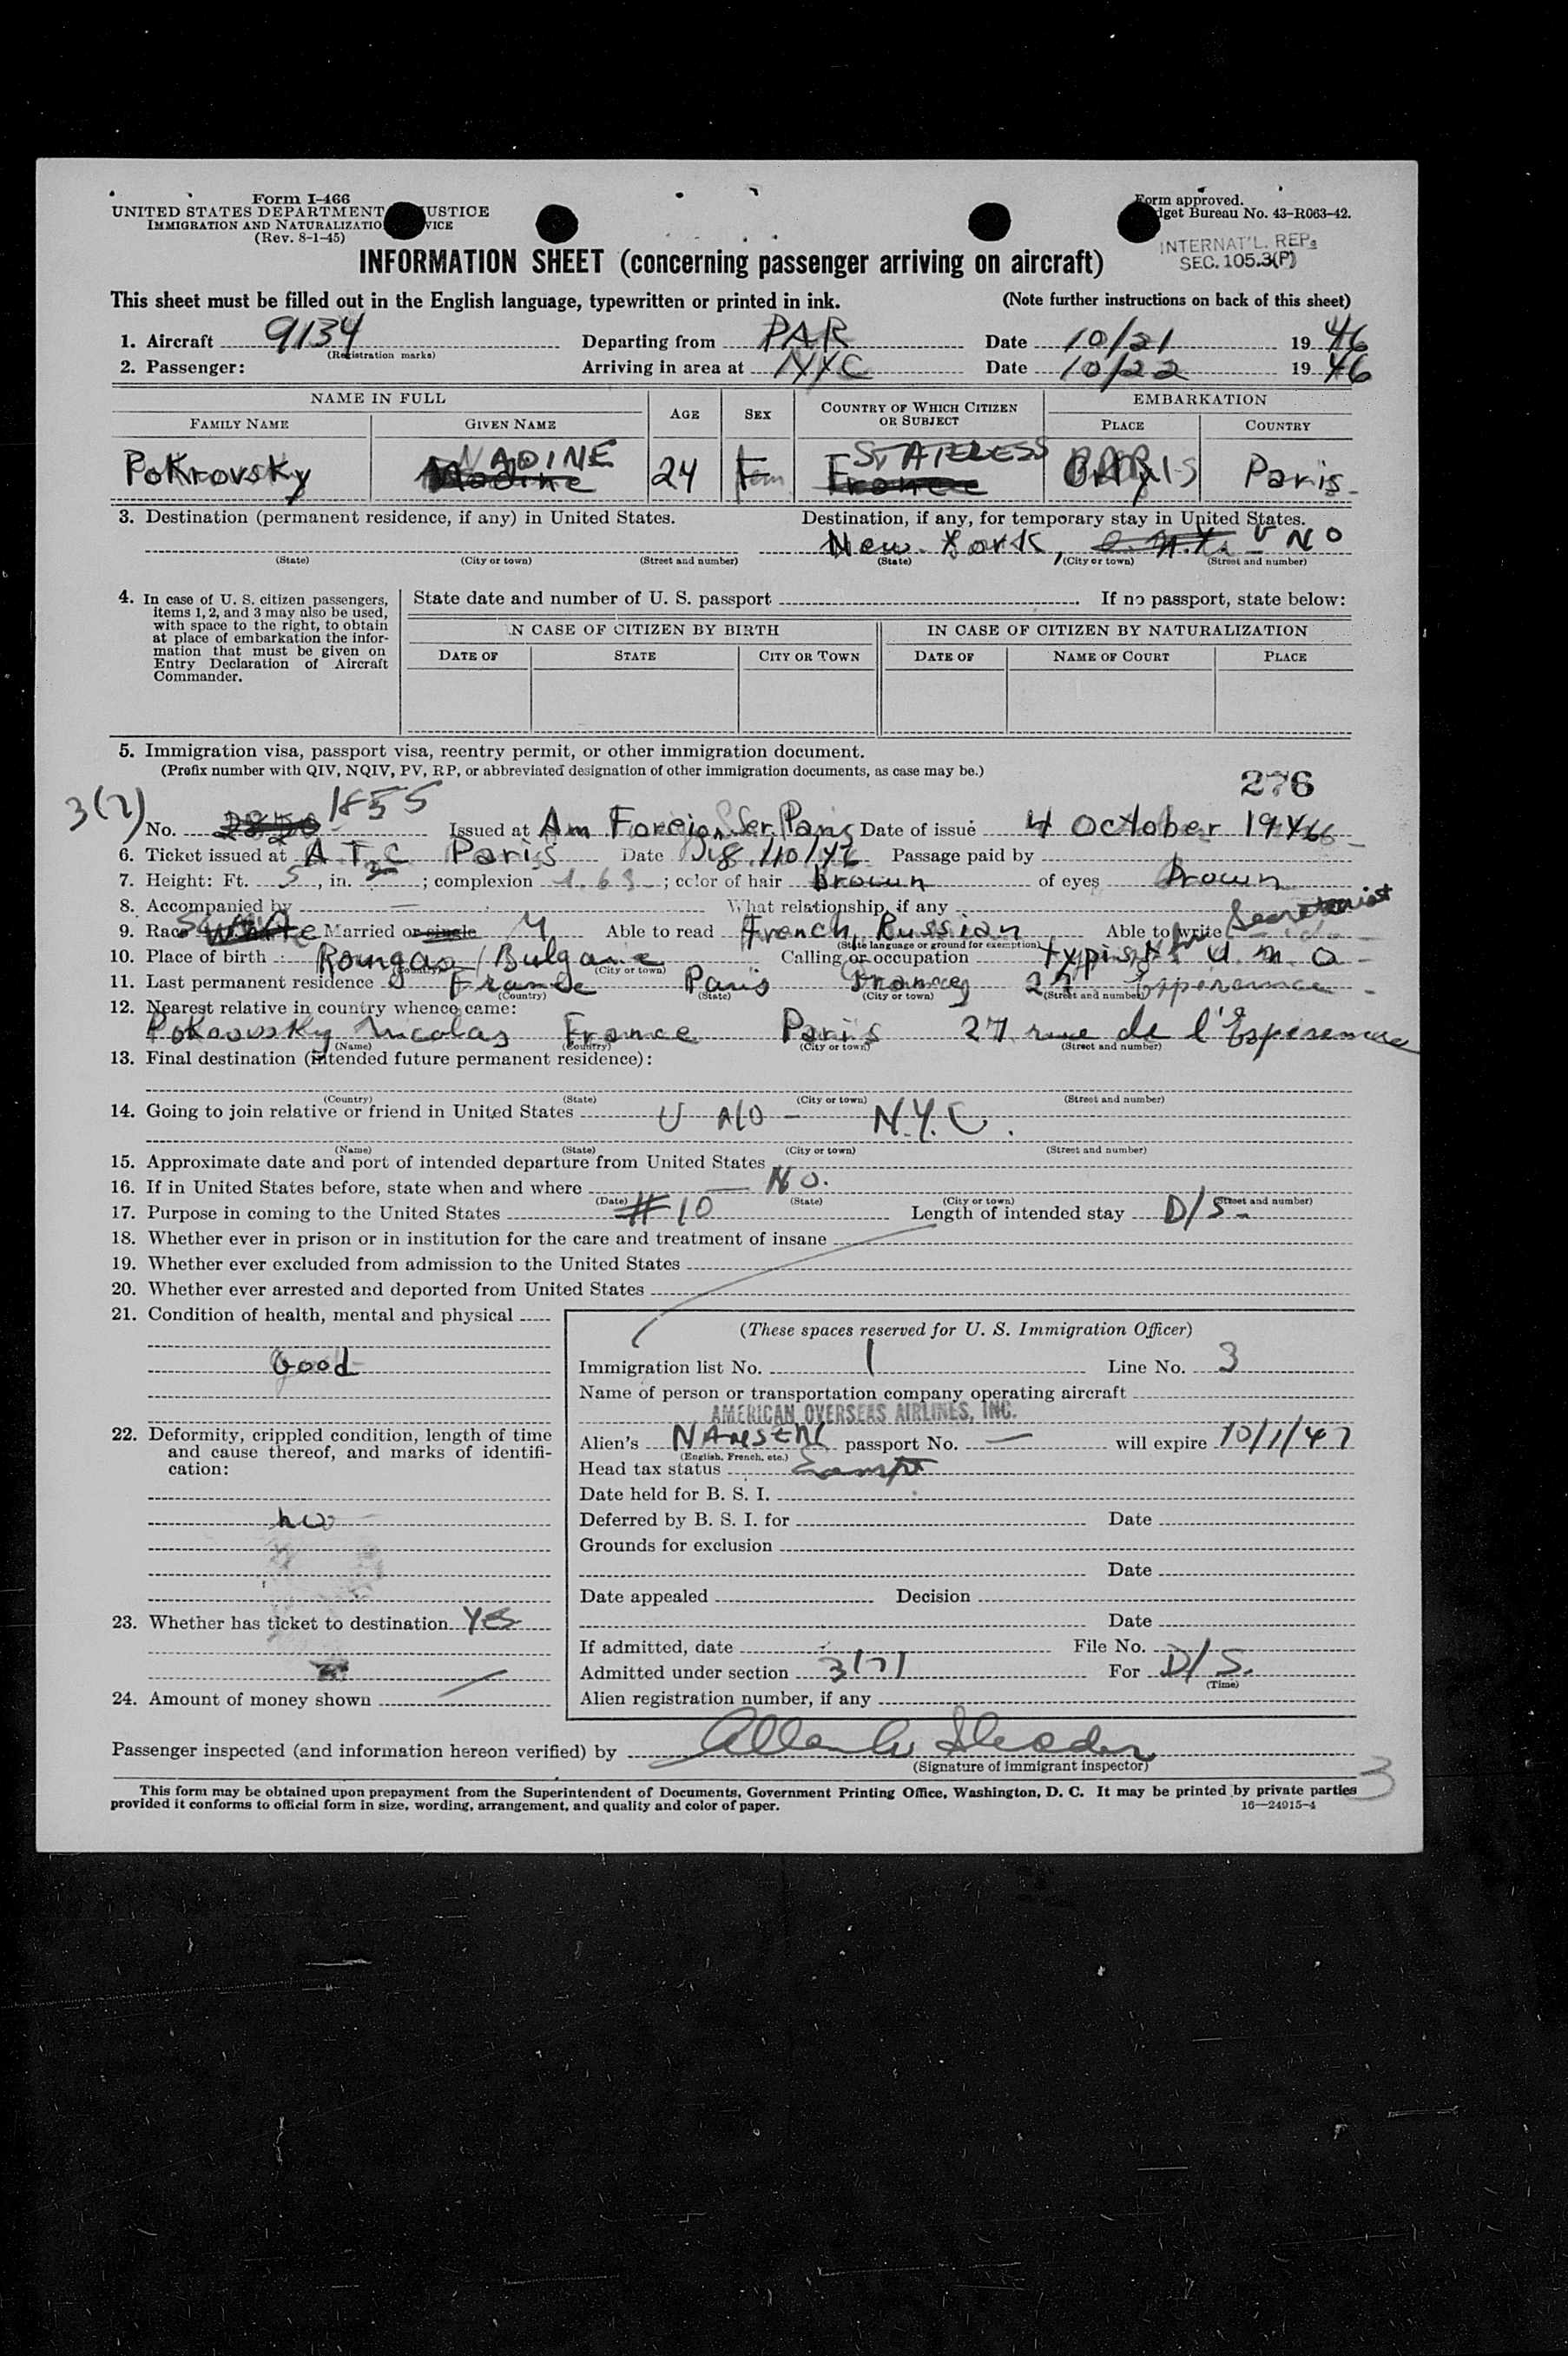 Form I-466
UNITED STATES DEPARTMENT USTICE
IMMIGRATION AND NATURALIZATIO VICE
(Rev. 8-1-45)
Form approved.
dget Bureau No. 43-R063-42.
INTERNAT'L. REP.
SEC. 105.3(P)
INFORMATION SHEET (concerning passenger arriving on aircraft)
This sheet must be filled out in the English language, typewritten or printed in ink. (Note further instructions on back of this sheet)
1. Aircraft 9134 Departing from PAR Date 10/21 19 46
(Registration marks)
2. Passenger: Arriving in area at NYC Date 10/22 19 46
NAME IN FULL AGE SEX COUNTRY OF WHICH CITIZEN OR SUBJECT EMBARKATION
FAMILY NAME GIVEN NAME PLACE COUNTRY
NADINE STATELESS PAR
Pokrovsky Nadine 24 Fem France Orly Paris
3. Destination (permanent residence, if any) in United States. Destination, if any, for temporary stay in United States.
New York, UNO
(State) (City or town) (Street and number) (State) (City or town) (Street and number)
4. In case of U. S. citizen passengers, items 1, 2, and 3 may also be used, with space to the right, to obtain at place of embarkation the information that must be given on Entry Declaration of Aircraft Commander.
State date and number of U. S. passport . If no passport, state below:
N CASE OF CITIZEN BY BIRTH IN CASE OF CITIZEN BY NATURALIZATION
DATE OF STATE CITY OR TOWN DATE OF NAME OF COURT PLACE
5. Immigration visa, passport visa, reentry permit, or other immigration document.
(Prefix number with QIV, NQIV, PV, RP, or abbreviated designation of other immigration documents, as case may be.)
276
3(7) No. 2850 1855 Issued at Am Foreign Ser. Paris Date of issue 4 October 1946
6. Ticket issued at ATC Paris Date 18/10/46 Passage paid by
7. Height: Ft. 5, in. 3; complexion 1.63; color of hair brown of eyes brown
8. Accompanied by — What relationship, if any
9. Race White Married or single M Able to read French, Russian Able to write
(State language or ground for exemption)
10. Place of birth Bulgarie Calling or occupation typist U.N.O
(Country) (City or town)
11. Last permanent residence France Paris France 27 Esperance
(Country) (State) (City or town) (Street and number)
12. Nearest relative in country whence came:
Pokrovsky Nicolas France Paris 27 rue de l'Esperance
(Name) (Country) (City or town) (Street and number)
13. Final destination (intended future permanent residence):
(Country) (State) (City or town) (Street and number)
14. Going to join relative or friend in United States UNO - N.Y.C.
(Name) (State) (City or town) (Street and number)
15. Approximate date and port of intended departure from United States
16. If in United States before, state when and where — NO.
(Date) (State) (City or town) (Street and number)
17. Purpose in coming to the United States #10 Length of intended stay D/S-
18. Whether ever in prison or in institution for the care and treatment of insane
19. Whether ever excluded from admission to the United States
20. Whether ever arrested and deported from United States
21. Condition of health, mental and physical
Good
22. Deformity, crippled condition, length of time and cause thereof, and marks of identification:
no
23. Whether has ticket to destination Yes
24. Amount of money shown
(These spaces reserved for U. S. Immigration Officer)
Immigration list No. 1 Line No. 3
Name of person or transportation company operating aircraft
AMERICAN OVERSEAS AIRLINES, INC.
Alien's NANSEN passport No. — will expire 10/1/47
(English, French, etc.)
Head tax status Exempt
Date held for B. S. I.
Deferred by B. S. I. for Date
Grounds for exclusion
Date
Date appealed Decision
Date
If admitted, date File No.
Admitted under section 3(7) For D/S.
(Time)
Alien registration number, if any
Passenger inspected (and information hereon verified) by
(Signature of immigrant inspector)
3
This form may be obtained upon prepayment from the Superintendent of Documents, Government Printing Office, Washington, D. C. It may be printed by private parties
provided it conforms to official form in size, wording, arrangement, and quality and color of paper. 16—24915-4